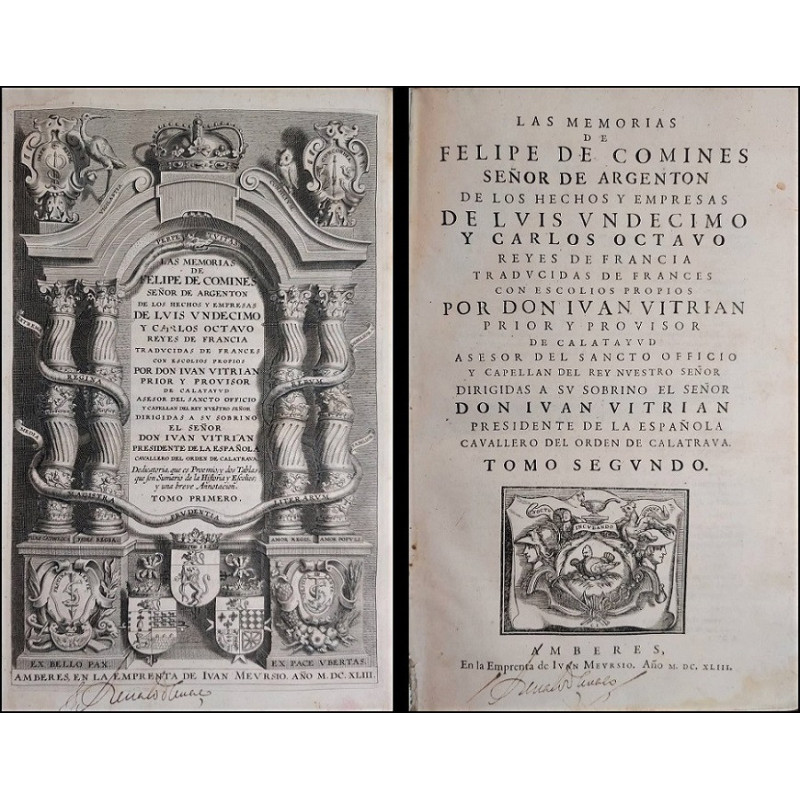 VIGILANTIA
PERPE TVITAS
LAS MEMORIAS
DE
FELIPE DE COMINES
SEÑOR DE ARGENTON
DE LOS HECHOS Y EMPRESAS
DE LVIS VNDECIMO
Y CARLOS OCTAVO
REYES DE FRANCIA
TRADVCIDAS DE FRANCES
CON ESCOLIOS PROPIOS
POR DON IVAN VITRIAN
PRIOR Y PROVISOR
DE CALATAYVD
ASESOR DEL SANCTO OFFICIO
Y CAPELLAN DEL REY NVESTRO SEÑOR
DIRIGIDAS A SV SOBRINO
EL SEÑOR
DON IVAN VITRIAN
PRESIDENTE DE LA ESPAÑOLA
CAVALLERO DEL ORDEN DE CALATRAVA.
Dedicatoria, que es Proemio, y dos Tablas
que son Sumario de la Historia y Escolios;
y una breve Annotacion.
TOMO PRIMERO.
REGINA RERVM
MAGISTRA LITERARVM
PRVDENTIA
FIDES REGIA AMOR REGIS AMOR POPVLI
EX BELLO PAX. EX PACE VBERTAS.
AMBERES, EN LA EMPRENTA DE IVAN MEVRSIO. AÑO M.DC.XLIII.
LAS MEMORIAS
DE
FELIPE DE COMINES
SEÑOR DE ARGENTON
DE LOS HECHOS Y EMPRESAS
DE LVIS VNDECIMO
Y CARLOS OCTAVO
REYES DE FRANCIA
TRADVCIDAS DE FRANCES
CON ESCOLIOS PROPIOS
POR DON IVAN VITRIAN
PRIOR Y PROVISOR
DE CALATAYVD
ASESOR DEL SANCTO OFFICIO
Y CAPELLAN DEL REY NVESTRO SEÑOR
DIRIGIDAS A SV SOBRINO EL SEÑOR
DON IVAN VITRIAN
PRESIDENTE DE LA ESPAÑOLA
CAVALLERO DEL ORDEN DE CALATRAVA.
TOMO SEGVNDO.
INCVBANDO
AMBERES,
En la Emprenta de IVAN MEVRSIO. Año M. DC. XLIII.